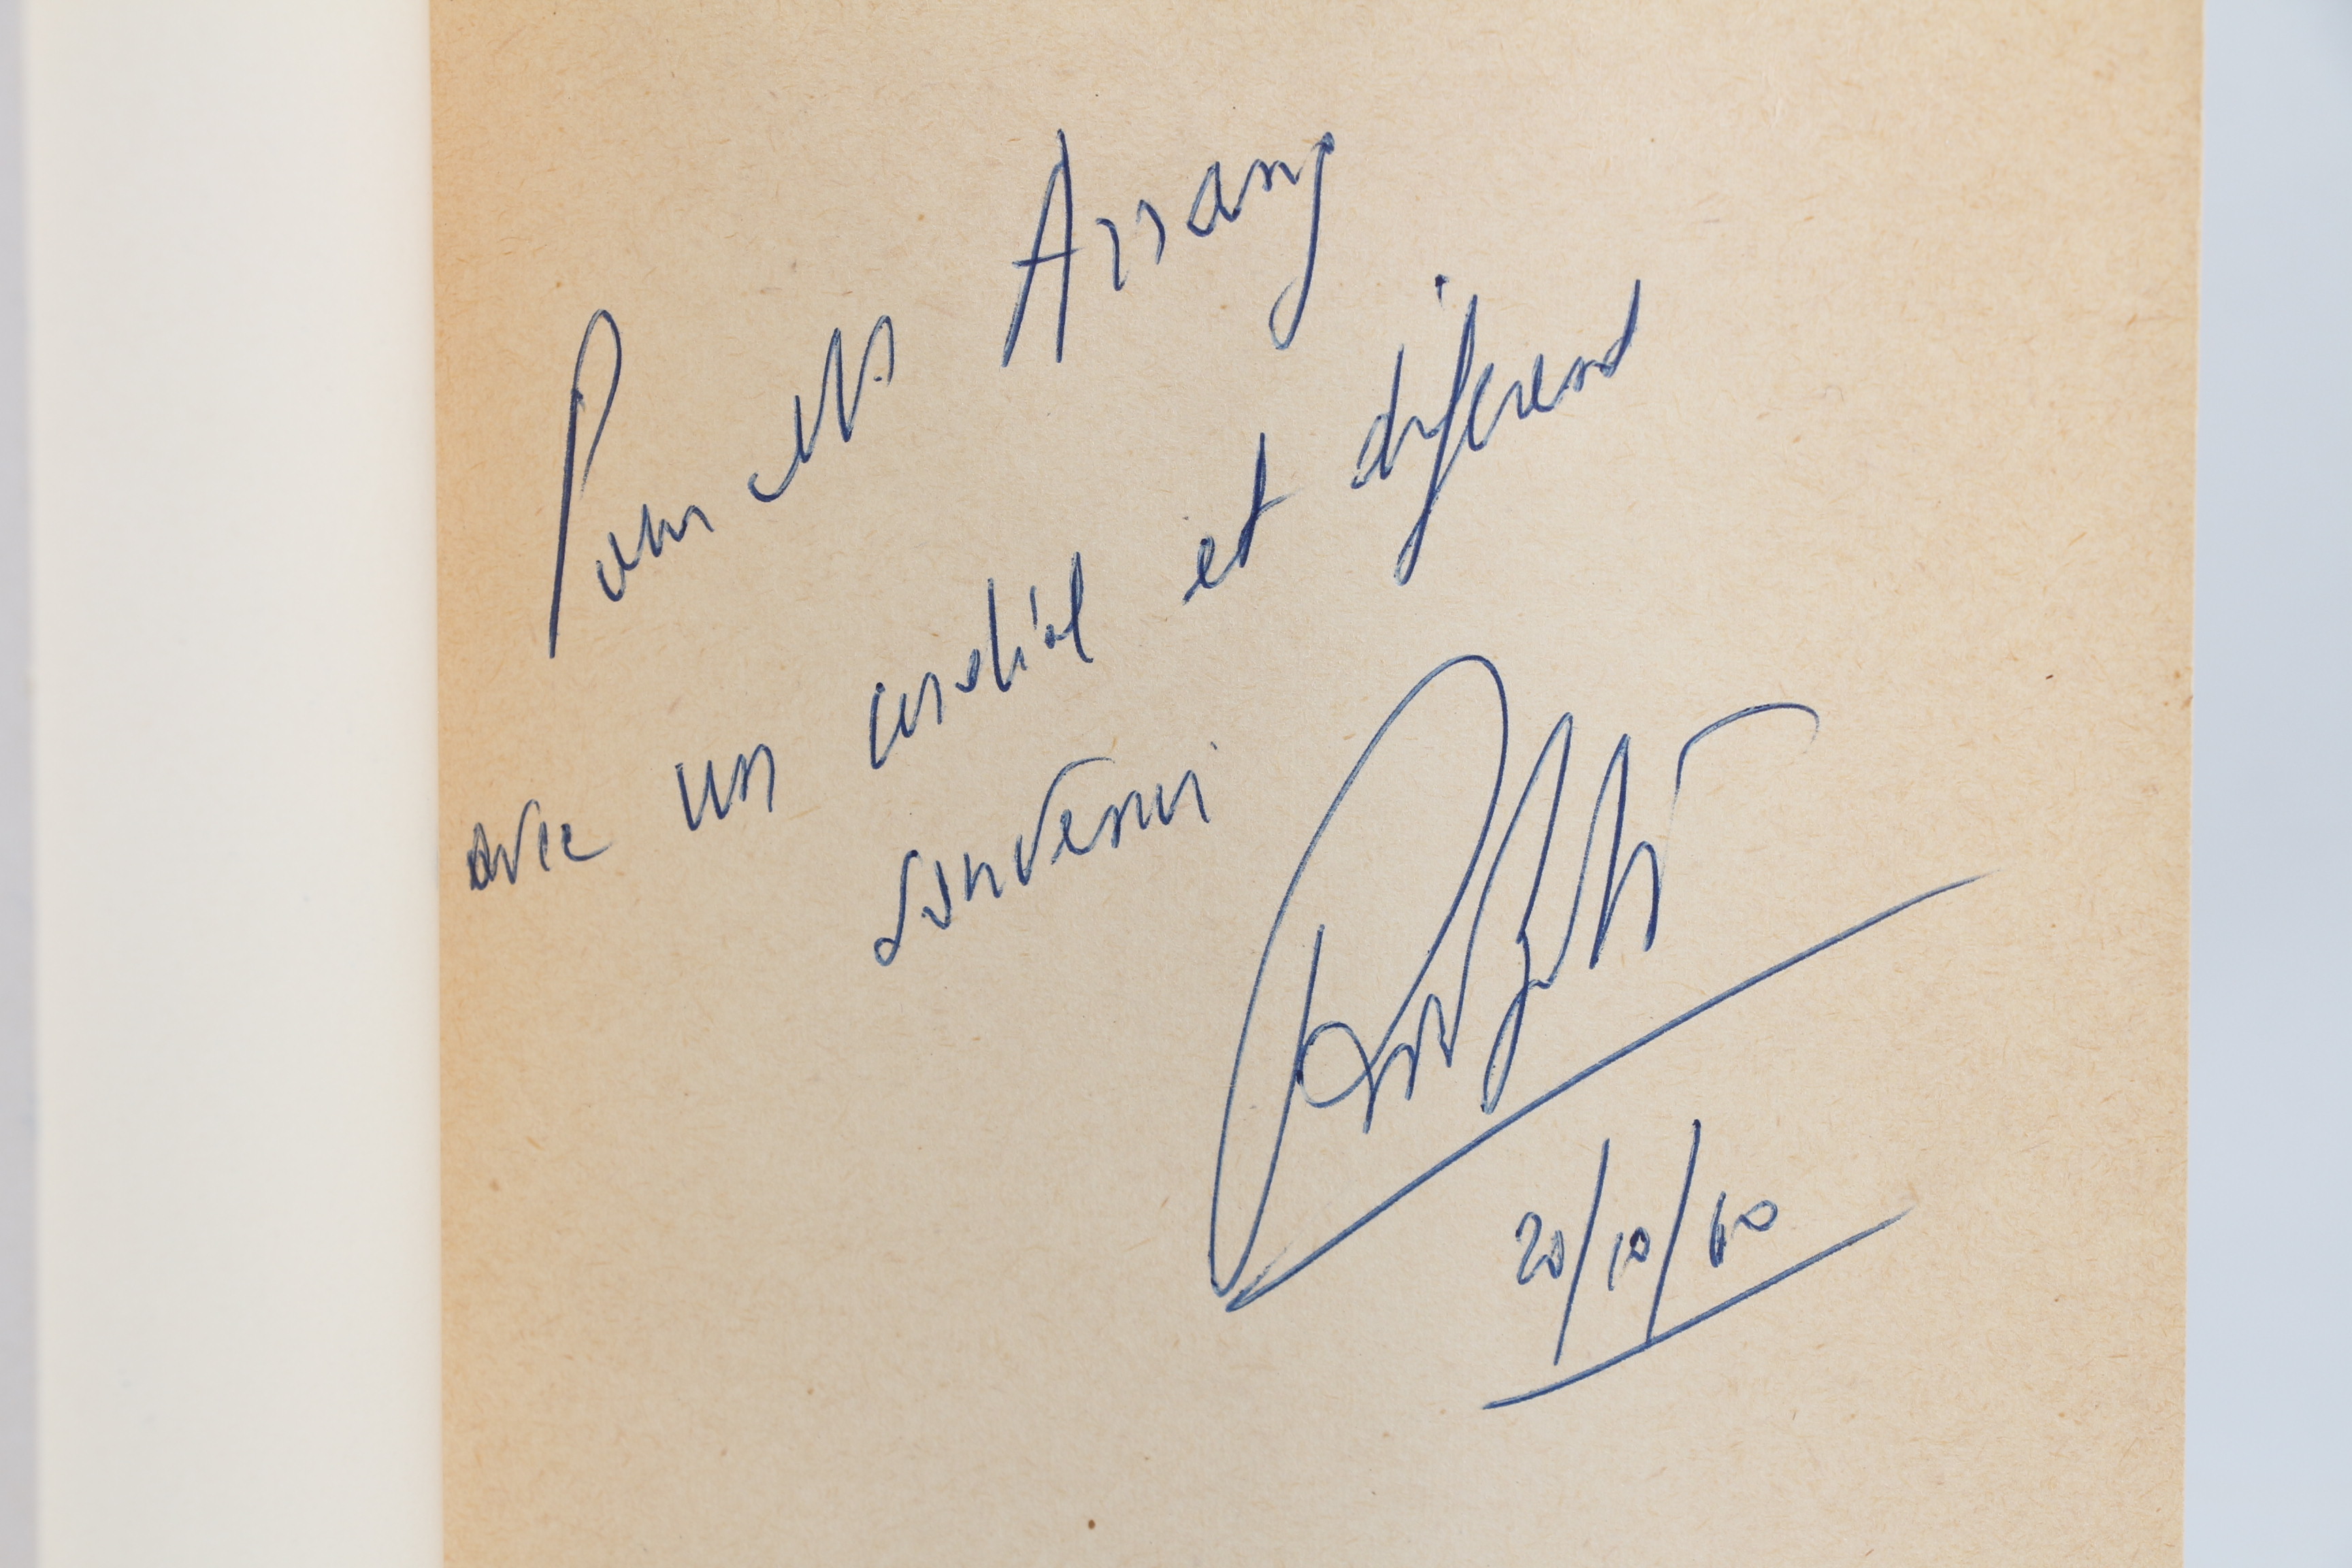 Pour M
avec un cordial et déférend
souvenir
20/10/60